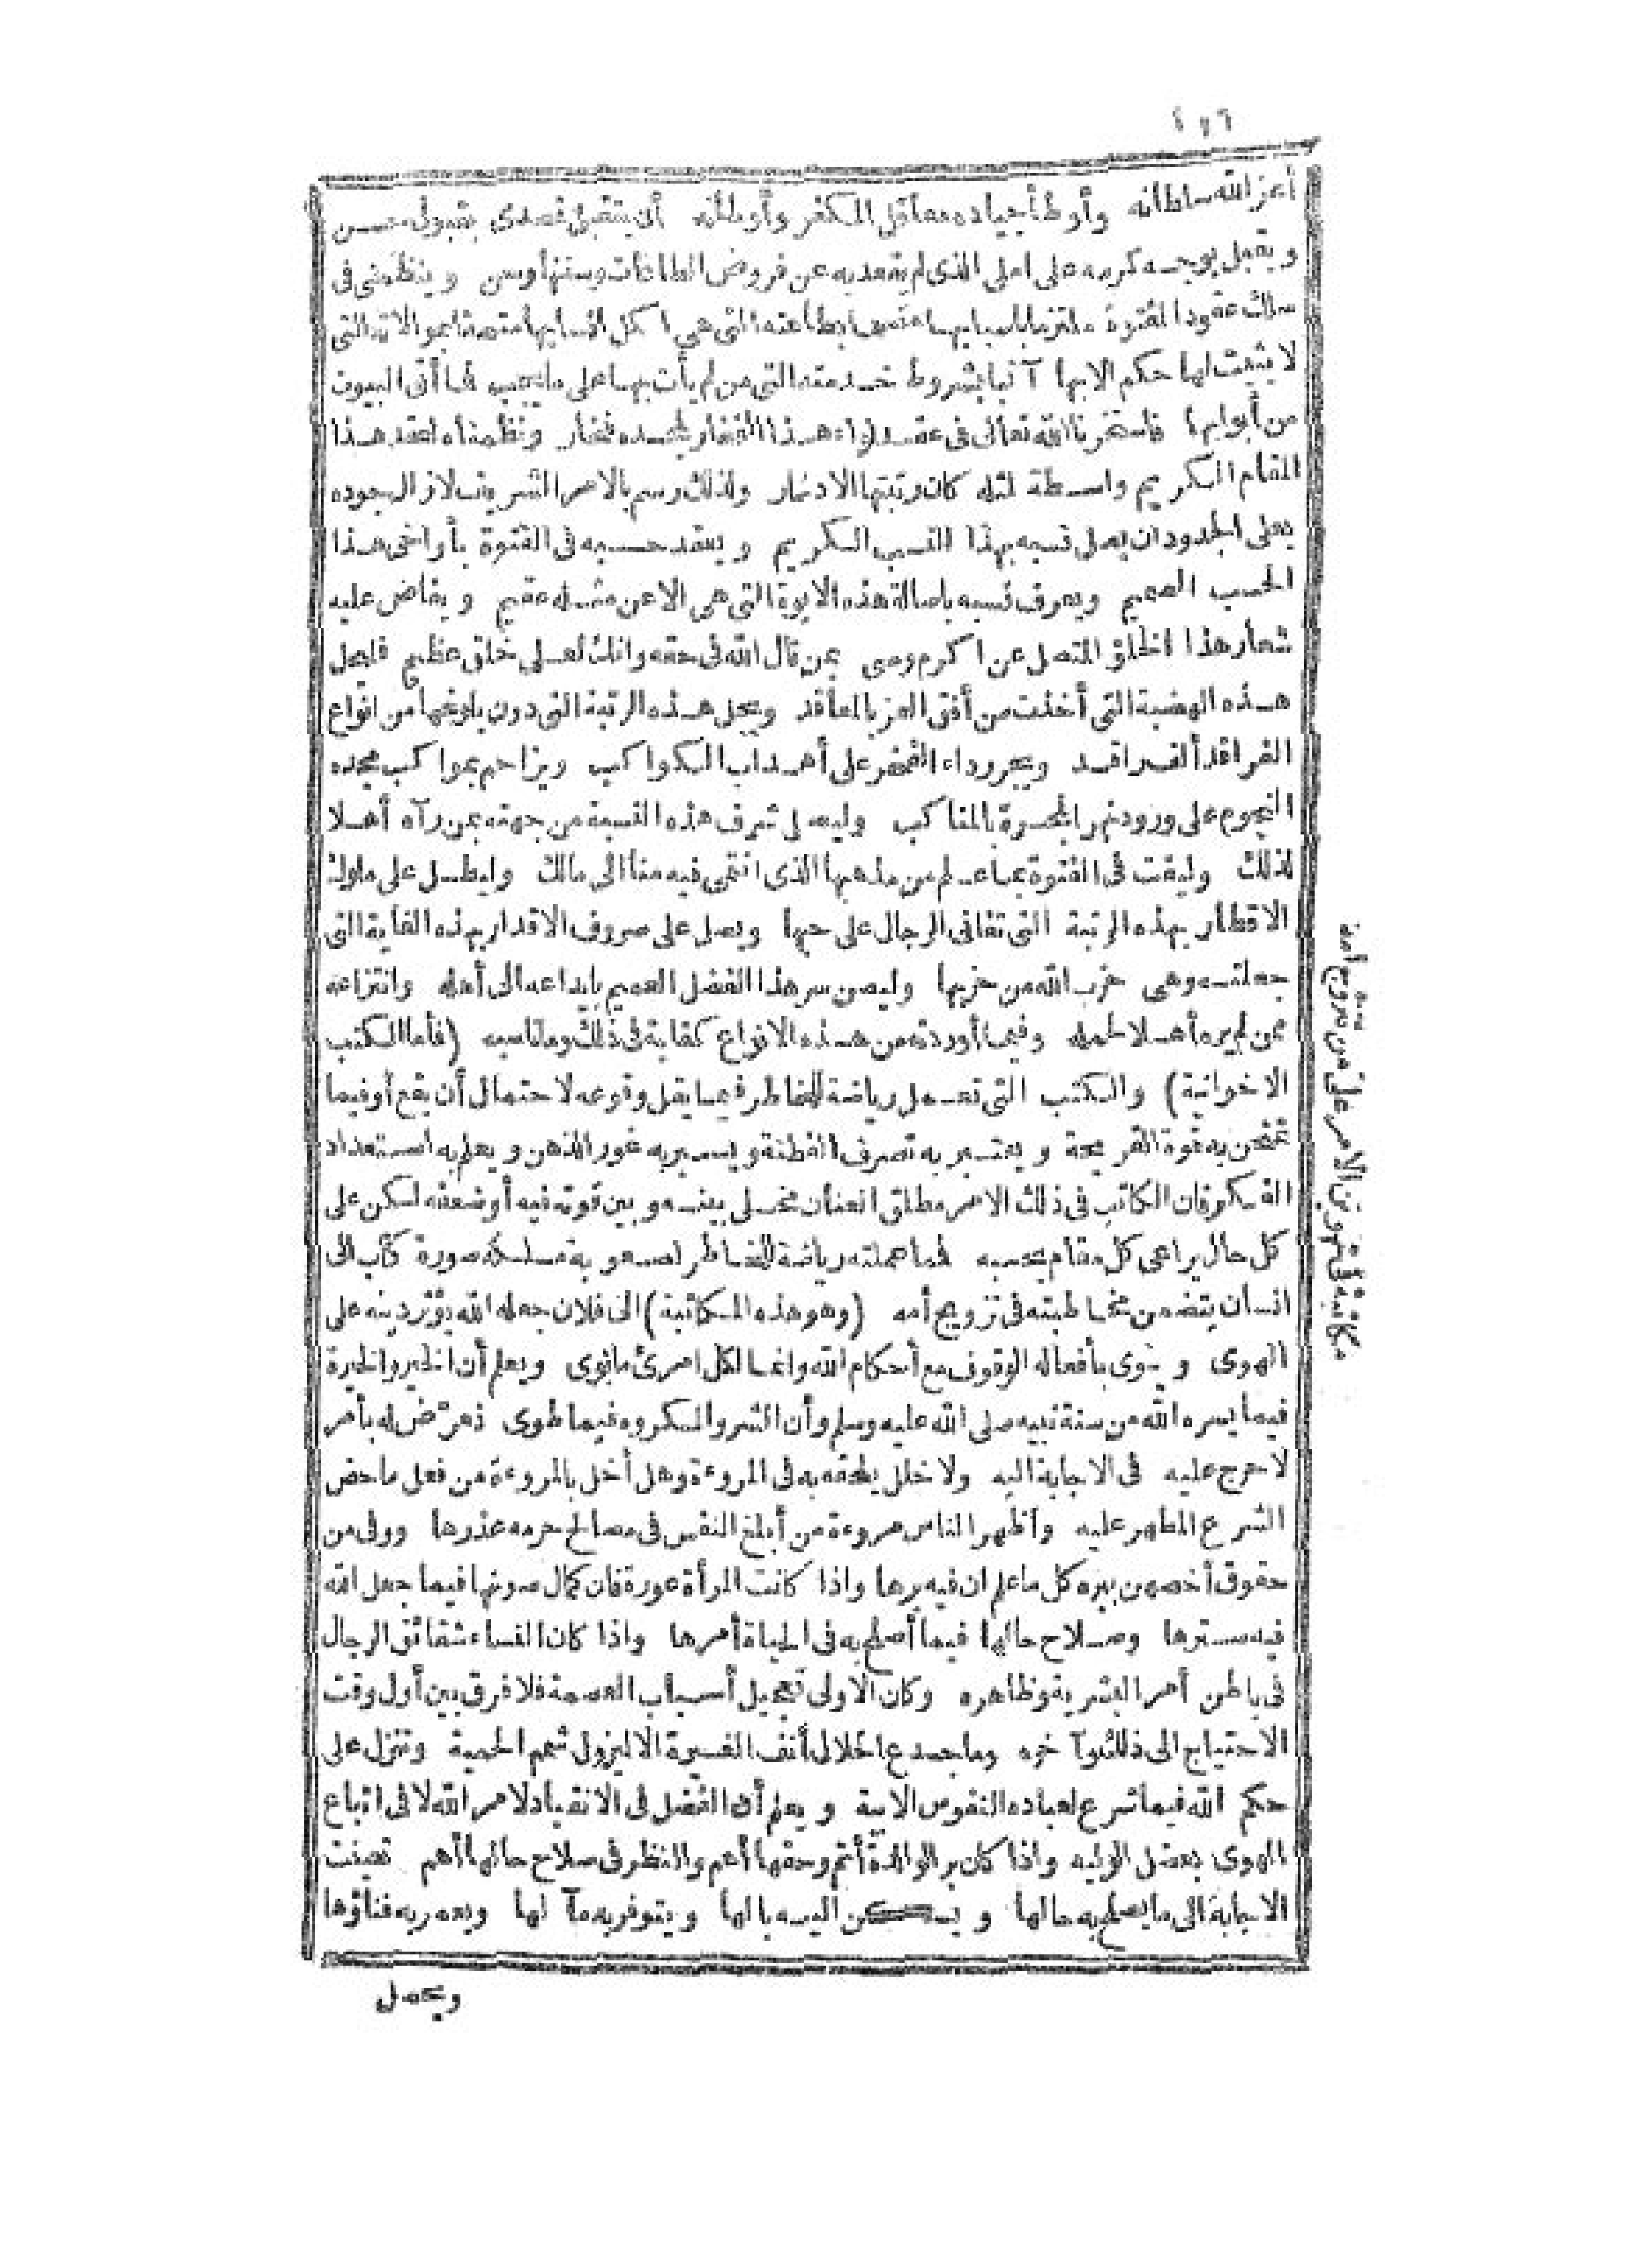 أعز الله سلطانه وأوطأ جياده معاقل الكفر وأوطانه أن يتقبل قصدى بقبول حسن
ويقبل بوجه كرمه على املى الذى لم يقعد به عن فروض الطاعات وسننها وسن وينظمنى فى
سلك عقود الفتوة ملتزما باسبابها معتصما بطاعته التى هى اكمل انسابها متمسكا بموالاته التى
لا يثبت لها حكم الا بها آتيا بشروط خدمته التى من لم يأت بها على ما يجب فما أتى البيوت
من أبوابها فاستخرنا الله تعالى فى عقد لواء هذا الفخار لمجده فخار ونظمناه لعقد هذا
المقام الكريم واسطة لمثله كان رتبتها الادخار ولذلك رسم بالامر الشريف لازال بجوده
يعلى الجدود ان يصل نسبه بهذا النسب الكريم ويعقد حسبه فى الفتوة بأواخى هذا
الحسب الصميم ويعرف نسبه باصالة هذه الابوة التى هى الا عن مثله عقيم ويفاض عليه
شعار هذا الخلق المتصل عن اكرم وصى بمن قال الله فى حقه وانك لعلى خلق عظيم فليحل
هذه الهضبة التى أخذت من أفق العز بالمعاقد ويحل هذه الرتبة التى دون بلوغها من انواع
الفراقد ألف راقد ويجر رداء الفخر على أهداب الكواكب ويزاحم بمواكب مجده
النجوم على ورود نهر المجرة بالمناكب وليصل شرف هذه النسبة من جهته بمن رآه أهلا
لذلك وليفت فى الفتوة بما علم من مذهبها الذى انتهى فيه منا الى مالك وليطل على ملوك
الاقطار بهذه الرتبة التى تفانى الرجال على حبها ويصل على صروف الاقدار بهذه الغاية التى
جعلته وهى حزب الله من حزبها وليصن سر هذا الفضل العميم بايداعه الى أهله وانتزاعه
ممن لم يره أهلا لحمله وفيما أوردته من هذه الانواع كفاية فى ذلك وما ناسبه (فأما الكتب
الاخوانية) والكتب التى تعمل رياضة للخاطر فيما يقل وقوعه لاحتمال أن يقع أو فيما
تمتحن به قوة القريحة ويعتبر به تصرف الفطنة ويسبر به غور الذهن ويعلم به استعداد
الفكر فان الكاتب فى ذلك الامر مطلق العنان مخلى بينه وبين قوته فيه أو ضعفه لكن على
كل حال يراعى كل مقام بحسبه فما عملته رياضة للخاطر لصعوبة مسلكه صورة كتاب الى
انسان يتضمن مخاطبته فى تزويج أمه (وهو هذه المكاتبة) الى فلان جعله الله يؤثر دينه على
الهوى وينوى بأفعاله الوقوف مع أحكام الله وانما لكل امرئ ما نوى ويعلم أن الخير والخيرة
فيما يسره الله من سنة نبيه صلى الله عليه وسلم وأن الشر والمكروه فيما طوى نعرّض له بأمر
لا حرج عليه فى الاجابة اليه ولا خلل يلحقه به فى المروءة وهل أخل بالمروءة من فعل ما حض
الشرع المطهر عليه وأظهر الناس مروءة من أبلغ النفس فى مصالح حرمه عذرها ووفى من
حقوق أخصهن ببره كل ما علم ان فيه برها واذا كانت المرأة عورة فان كمال صونها فيما جعل الله
فيه سترها وصلاح حالها فيما أصلح به فى الحياة أمرها واذا كان النساء شقائق الرجال
فى باطن أمر البشرية وظاهره وكان الاولى تعجيل أسباب العصمة فلا فرق بين أول وقت
الاحتياج الى ذلك وآخره وما جدع الحلال أنف الغيرة الا ليزول شمم الحمية وتنزل على
حكم الله فيما شرع لعباده النفوس الابية ويعلم أن الفضل فى الانقياد لامر الله لا فى اتباع
الهوى بعضل الوليه واذا كان بر الوالدة أتم وحقها أعم والنظر فى صلاح حالها أهم تعينت
الاجابة الى ما يصلح به حالها ويسكن اليه بالها ويتوفر به مآلها ويعمر به فناؤها
ويحمل